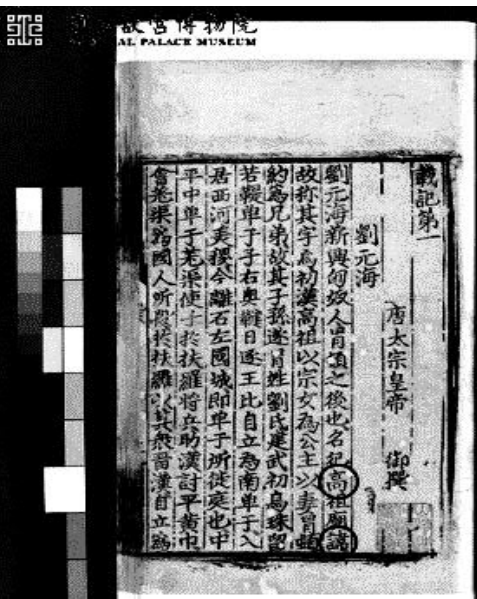 故宮博物院
AL PALACE MUSEUM
載記第一
唐太宗皇帝 御撰
劉元海
劉元海新興匈奴人冒頓之後也名犯高祖廟諱
故称其字焉初漢高祖以宗女為公主以妻冒頓
約為兄弟故其子孫遂冒姓劉氏建武初烏珠留
若鞮单于子右奥鞬日逐王比自立為南单于入
居西河美稷今離石左國城即单于所徙庭也中
平中单于羌渠使子於扶羅將兵助漢討平黄巾
會羌渠為國人所殺於扶羅以其衆留漢自立為